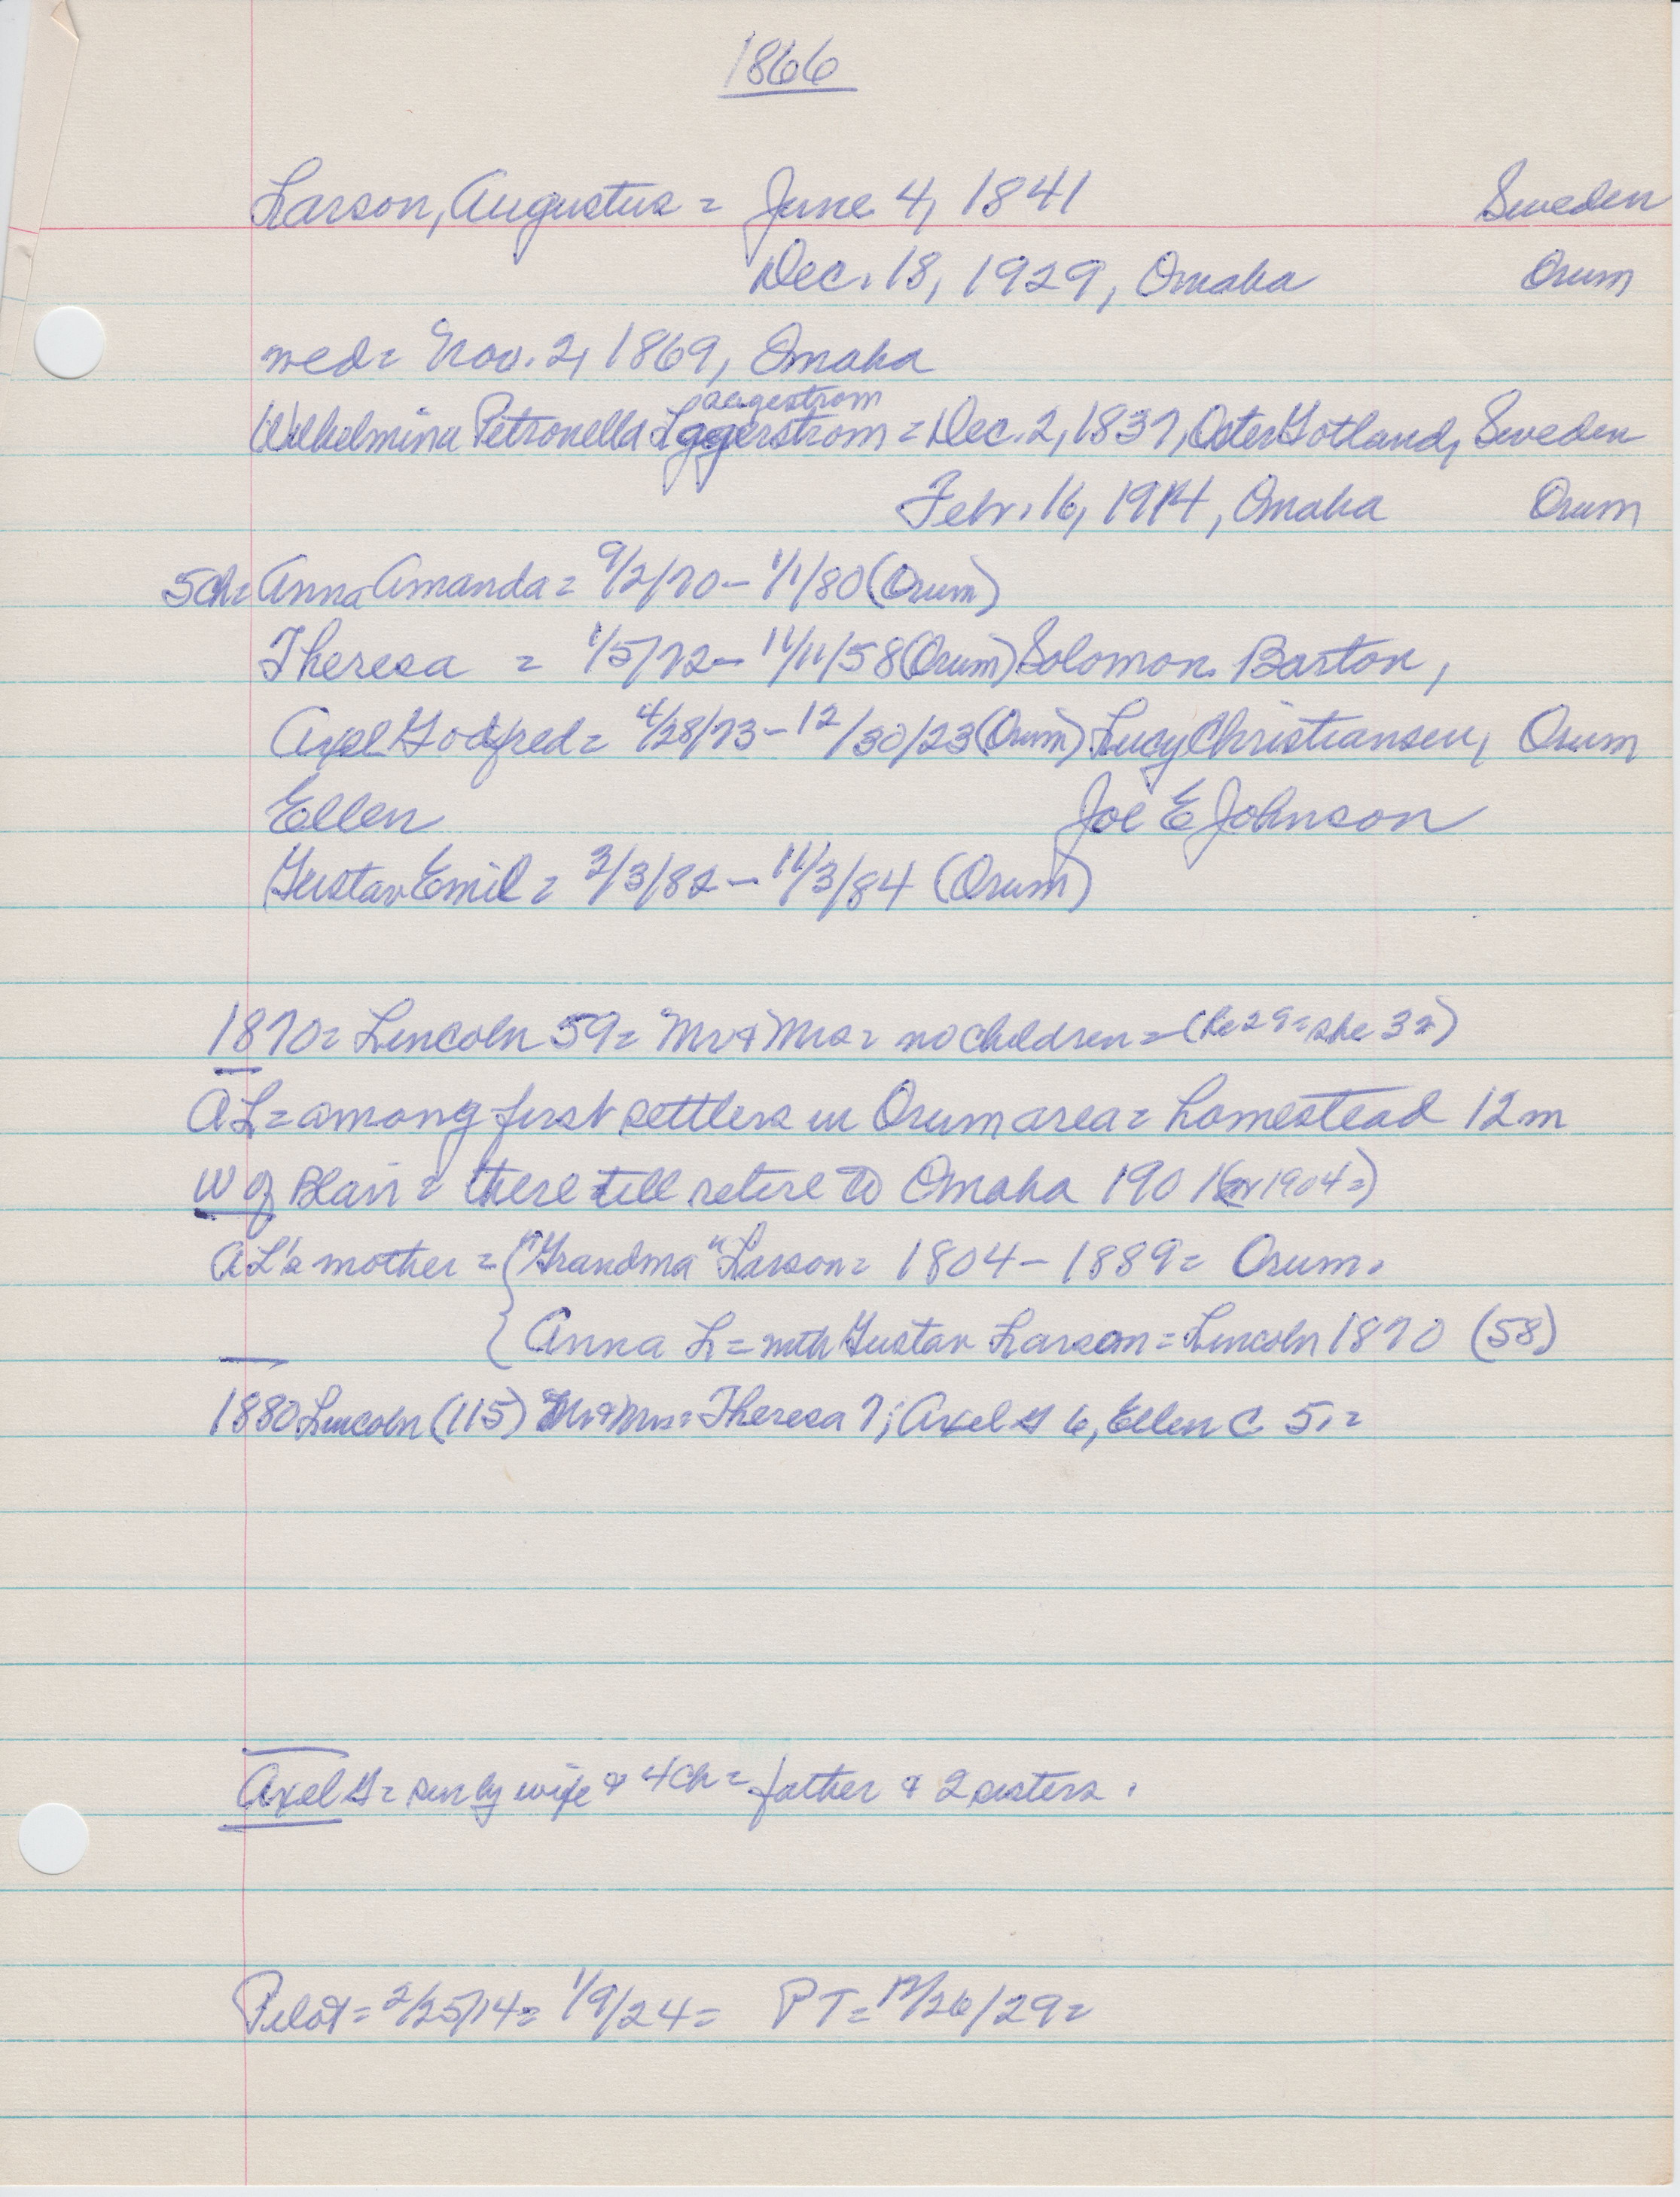 1866
Larson, Augustus = June 4, 1841 Sweden
Dec. 18, 1929, Omaha Orum
wed = Nov. 2, 1869, Omaha
augestrom
Wilhelmina Petronella Lggerstrom = Dec. 2, 1837, Oster Gotland, Sweden
Febr. 16, 1914, Omaha Orum
5ch = Anna Amanda = 9/2/70 - 1/1/80 (Orum)
Theresa = 1/5/72 - 11/11/58 (Orum) Solomon Barton,
Axel Godfred = 4/28/73 - 12/30/23 (Orum) Lucy Christiansen, Orum
Ellen Joe E Johnson
Gustav Emil = 3/3/82 - 11/3/84 (Orum)
1870 = Lincoln 59 = Mr & Mrs = no children = (he 29 = she 32)
AL = among first settlers in Orum area = homestead 12 m
W of Blair = there till retire to Omaha 1901 (or 1904 =)
AL's mother = { "Grandma" Larson = 1804 - 1889 = Orum.
{ Anna L = mth Gustav Larson = Lincoln 1870 (58)
1880 Lincoln (115) Mr & Mrs = Theresa 7; Axel G 6, Ellen C 5. =
Axel G = sur by wife & 4 ch = father & 2 sisters.
Pilot = 2/25/14 = 1/9/24 = PT = 12/26/29 =